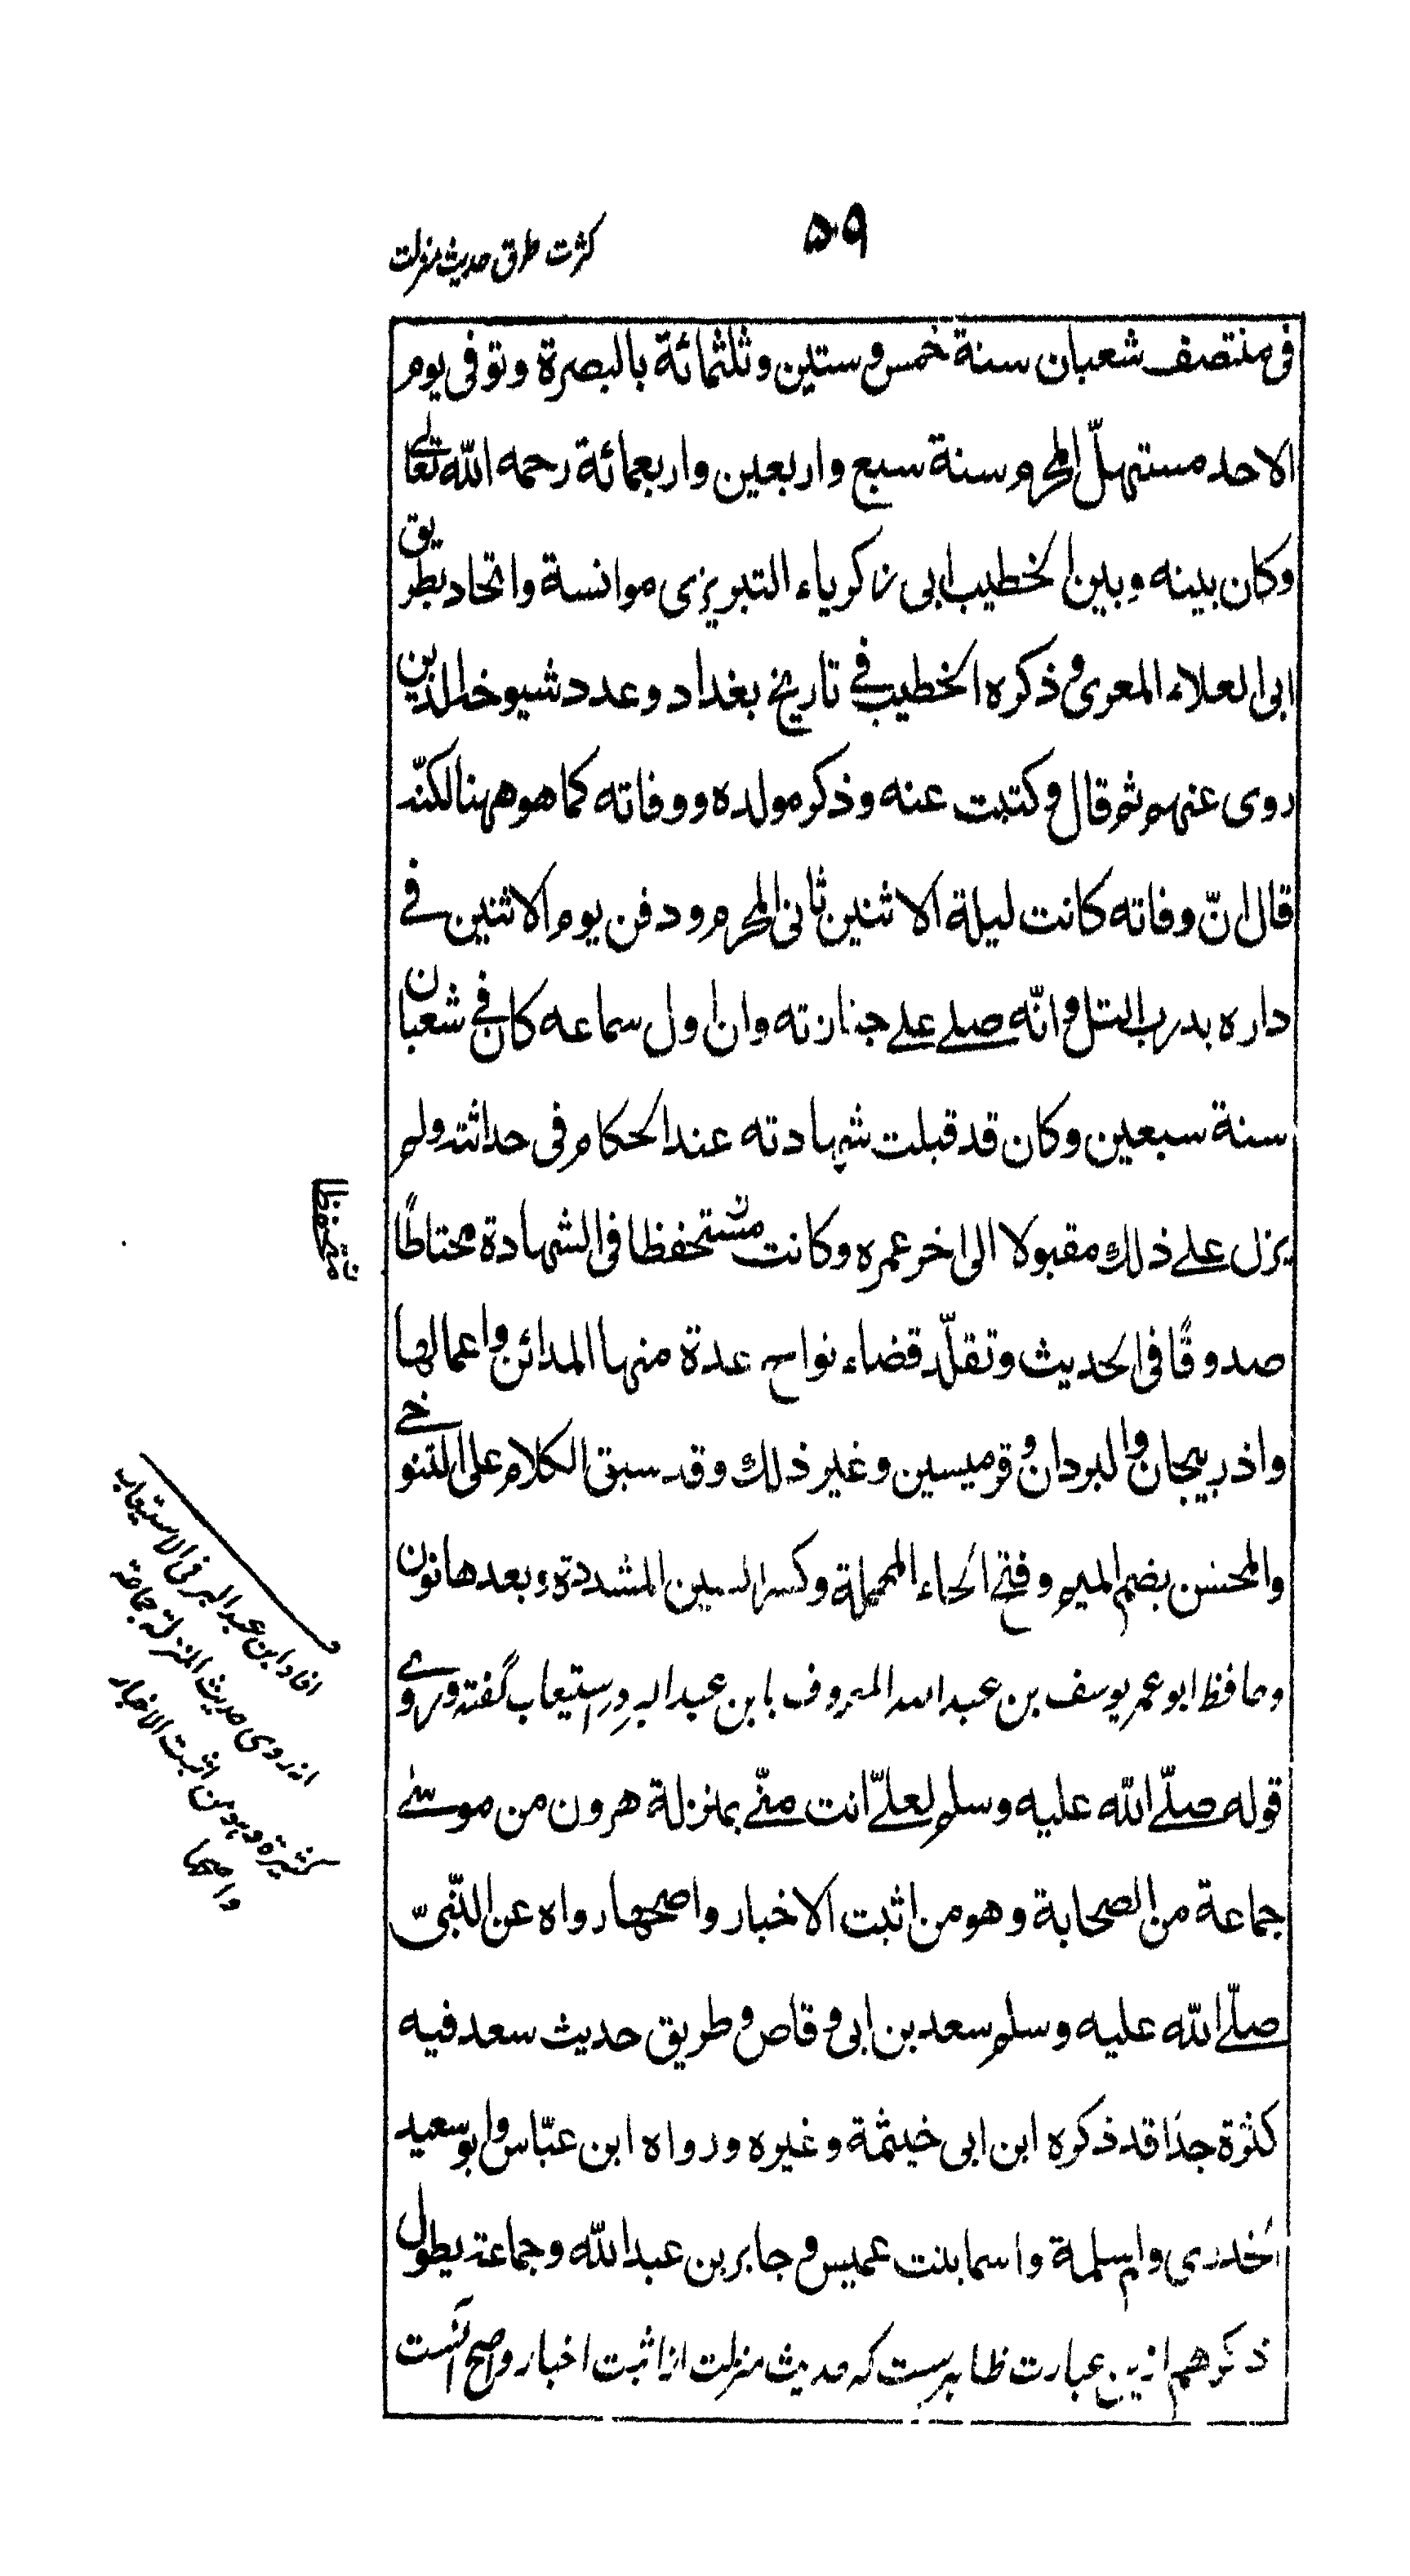 ۵۹
کثرت طرق حدیث منزلت
فی منتصف شعبان سنة خمس و ستین و ثلثمائة بالبصرة و توفی یوم
الاحد مستهلّ المحرم سنة سبع و اربعین و اربعمائة رحمه الله تعالے
وکان بینه وبین الخطیب ابی زکریاء التبریزی موانسة واتحاد بطریق
ابی العلاء المعری و ذکره الخطیب فے تاریخ بغداد و عدد شیوخه الذین
روی عنهم ثم قال و کتبت عنه و ذکر مولده و وفاته کما هو ههنا لکنّه
قال انّ وفاته کانت لیلة الاثنین ثانی المحرم و دفن یوم الاثنین فے
داره بدرب التل و انّه صلے علے جنازته وان اول سماعه کان فے شعبان
سنة سبعین وکان قد قبلت شهادته عند الحکام فی حداثته ولم
یزل علے ذلك مقبولا الی اخر عمره وکانت مستحفظا فی الشهادة محتاطًا
صدوقًا فی الحدیث وتقلّد قضاء نواح عدة منها المدائن واعمالها
واذربیجان والبردان و قرمیسین و غیر ذلك وقد سبق الکلام علی التنوخے
والمحسن بضم المیم و فتح الحاء المهملة و کسر السین المشددة وبعدها نون
و حافظ ابو عمر یوسف بن عبد الله المعروف بابن عبد البر در استیعاب گفته وروے
قوله صلّے الله علیه وسلم لعلیّ انت منّے بمنزلة هرون من موسٰے
جماعة من الصحابة وهو من اثبت الاخبار واصحها رواه عن النّبیّ
صلّے الله علیه وسلم سعد بن ابی وقاص و طریق حدیث سعد فیه
کثرة جدّا قد ذکره ابن ابی خیثمة و غیره و رواه ابن عبّاس وابو سعید
الخدری وام سلمة و اسما بنت عمیس و جابر بن عبد الله وجماعة یطول
ذکرهم ازین عبارت ظاهرست که حدیث منزلت از اثبت اخبار و اصح آنست
افاد ابن عبد البر فی الاستیعاب
انه روی حدیث المنزلة جماعة
کثیرة و هو من اثبت الاخبار
واصحها